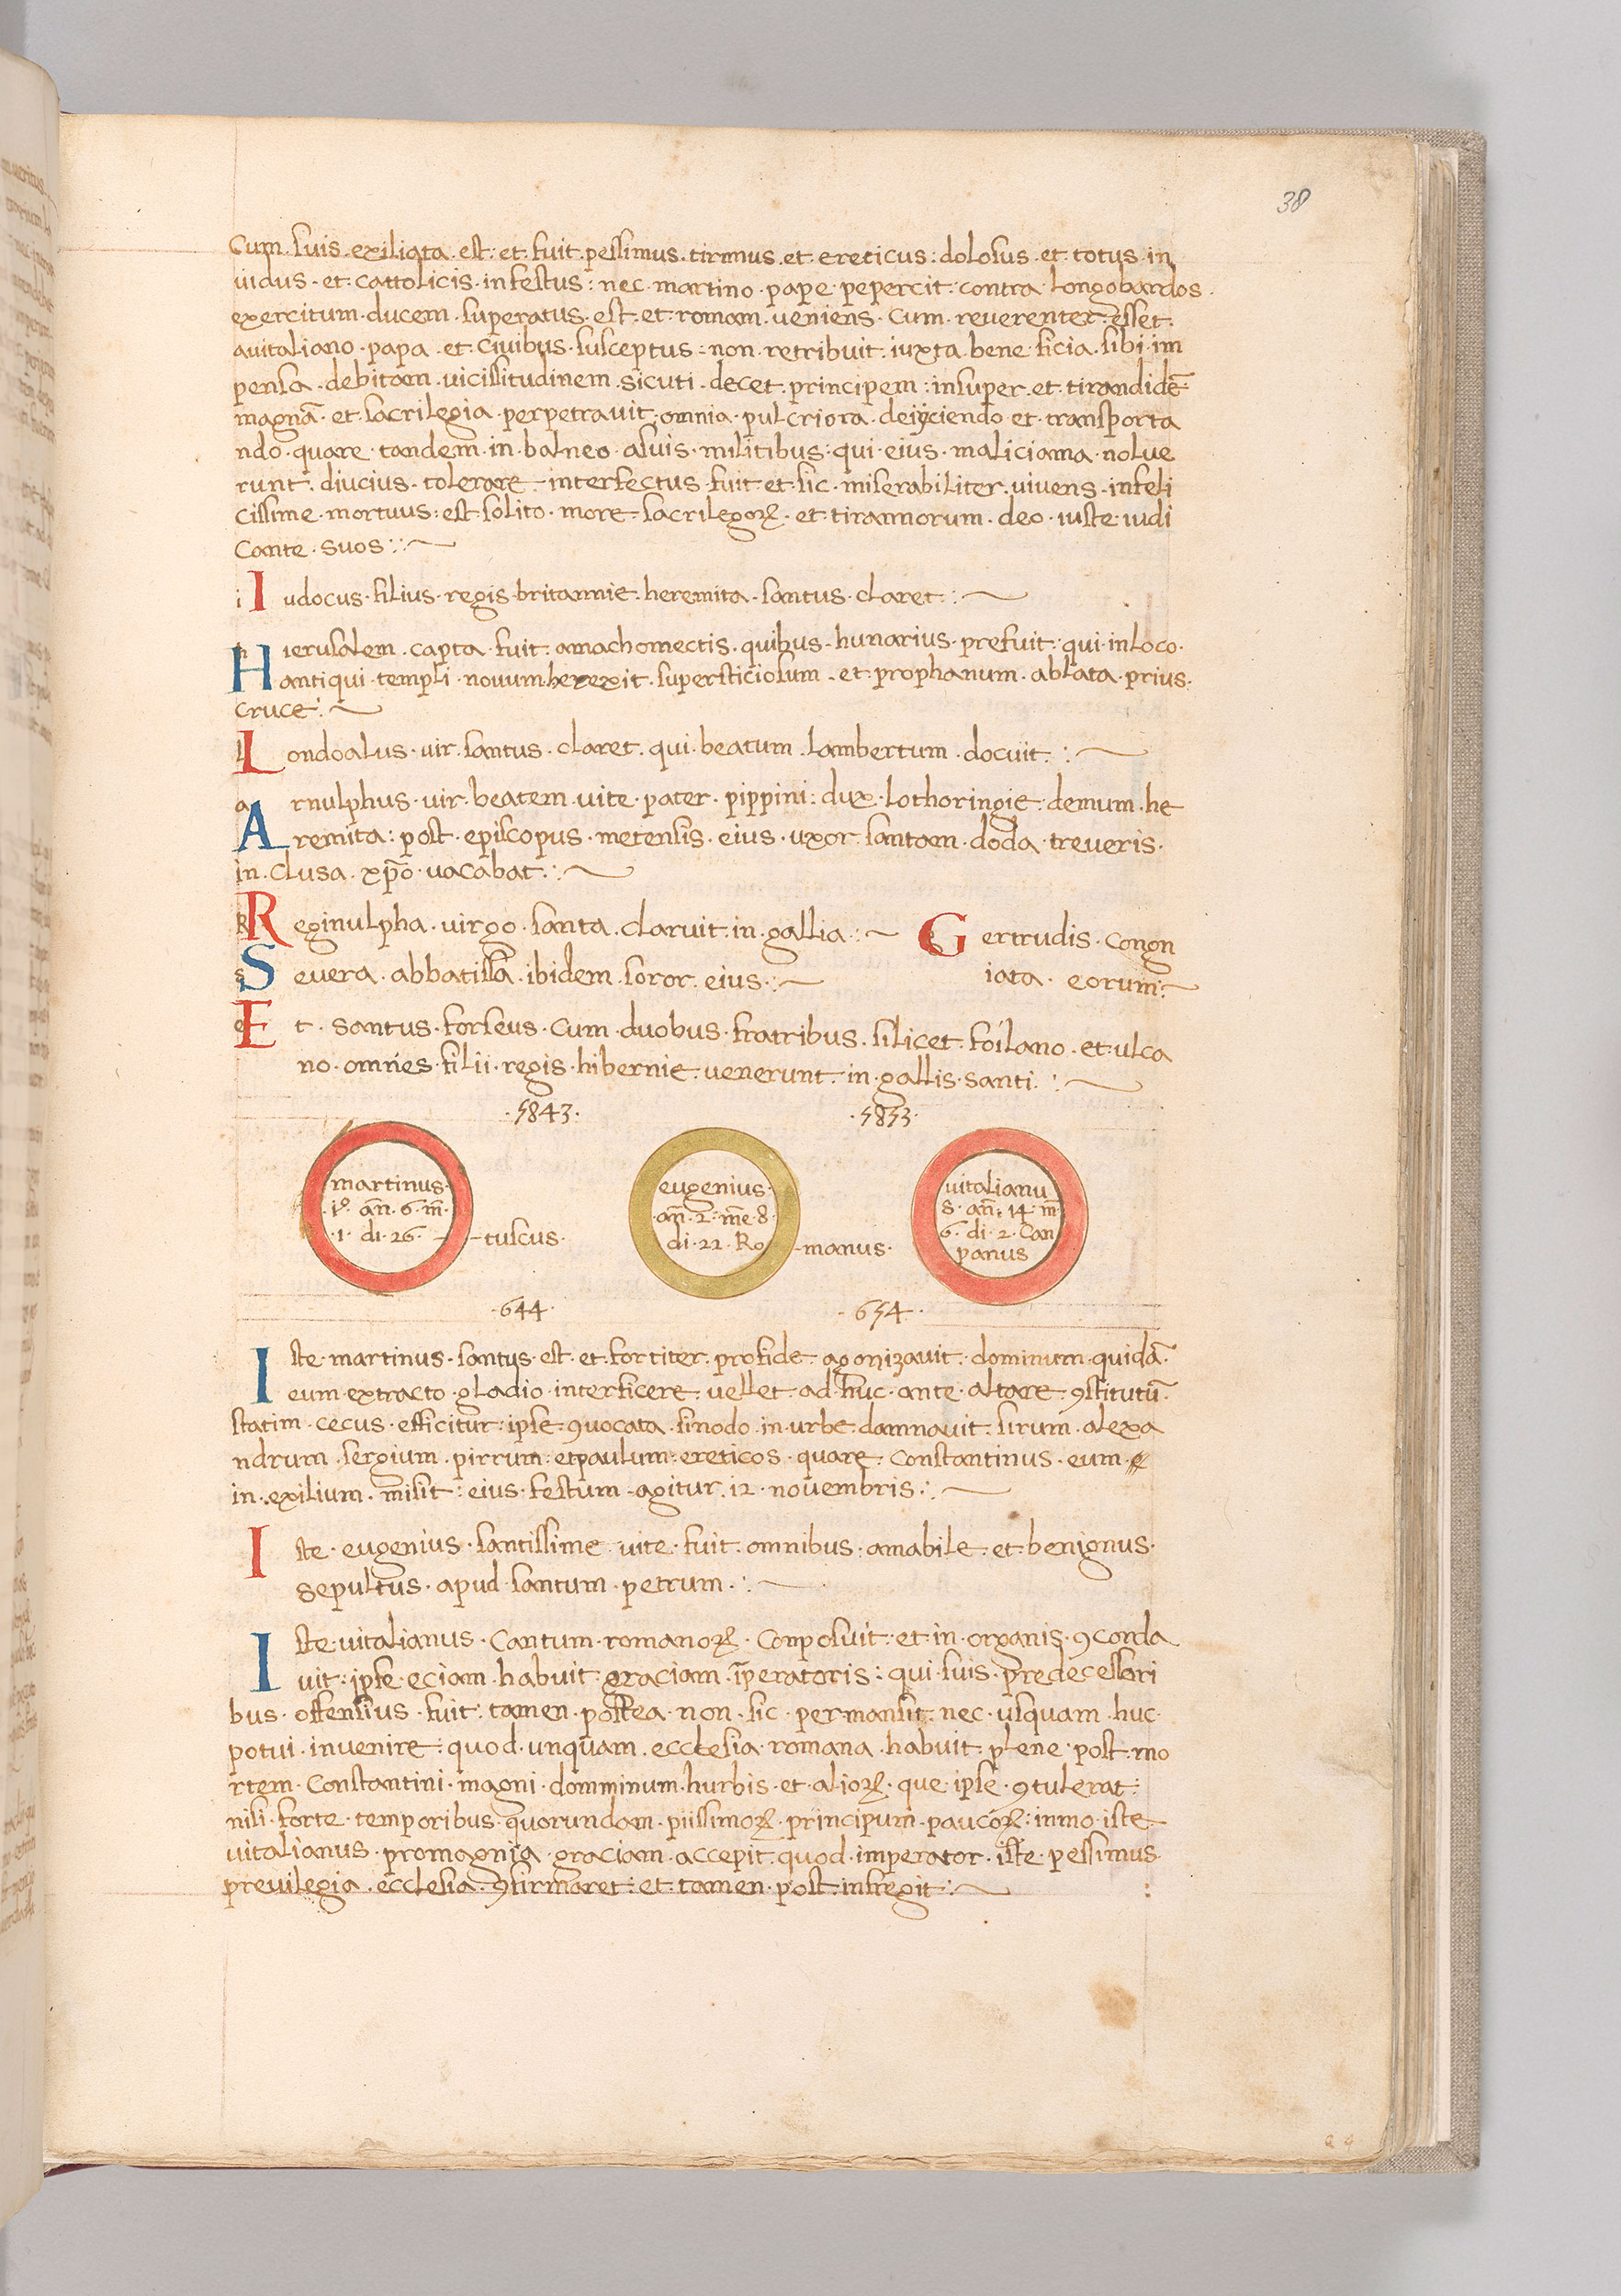 38
Cum . suis . exiliata . est : et . fuit . pessimus . tirannus . et . ereticus : dolosus . et . totus . in
vidus . et . cattolicis . infestus : nec . martino . pape . pepercit . contra . longobardos .
exercitum . ducem . superatus . est . et . romam . veniens . Cum . reverenter . esset .
avitaliano . papa . et . civibus . susceptus : non . retribuit . iuxta . bene . ficia . sibi . im
pensa . debitam . vicissitudinem . sicuti . decet . principem : insuper . et . tirandidē
magnā . et . sacrilegia . perpetravit . omnia . pulcriora . deiyciendo et . transporta
ndo . quare . tandem . in . balneo . asuis . militibus : qui . eius . maliciama . nolue
runt . diucius . tolerare . interfectus . fuit . et . sic . miserabiliter . vivens . infeli
cissime . mortuus : est . solito . more . sacrilegoꝝ . et . tirannorum . deo . iuste . iudi
cante . suos :
i I udocus . filius . regis . britannie . heremita . santus . claret :
H ierusalem . capta . fuit . amachomectis . quibus . hunarius . prefuit : qui . inloco .
antiqui . templi . novum . herexit . supersticiosum . et . prophanum . ablata . prius .
cruce :
L ondoalus . vir . santus . claret . qui . beatum . lambertum . docuit :
a A rnulphus . vir . beatem . vite . pater . pippini : dux . lothoringie : demum . he
remita : post . episcopus . metensis . eius . uxor . santam . doda . treveris .
in . clusa . xp̄o . vacabat :
R eginulpha . virgo . santa . claruit . in . gallia :
G ertrudis . congn
S evera . abbatissa . ibidem . soror . eius :
iata . eorum :
e E t . santus . forseus . Cum . duobus . fratribus . silicet . foilano . et . ulca
no . omnes . filii . regis . hibernie . venerunt . in . gallis . santi :
. 5843 . . 5853 .
martinus .
. i⁰ . an̄ . 6 . m̄ .
. 1 . di . 26 . tuscus .
eugenius .
. an̄ . 2 . m̄e . 8 .
di . 22 . Ro manus .
vitalianu
s . an̄ . 14 . m̄
6 . di . 2 . Can
panus
. 644 . . 654 .
I ste . martinus . santus . est . et . fortiter . profide . agonizavit . dominum . quidā .
eum . extracto . gladio . interficere . vellet . ad . huc . ante . altare . ꝯstitutū .
statim . cecus . efficitur : ipse . ꝯvocata . sinodo . in . urbe . damnavit . sirum . alexa
ndrum . sergium . pirrum : etpaulum : ereticos . quare . Constantinus . eum .
in . exilium . misit : eius . festum . agitur . 12 . novembris :
I ste . eugenius . santissime . vite . fuit . omnibus . amabile . et . benignus .
sepultus . apud . santum . petrum . :
I ste . vitalianus . Cantum . romanoꝝ . Conposuit . et . in . organis . ꝯcorda
vit : ipse . eciam . habuit . graciam . īperatoris : qui . suis . predecessori
bus . offensius . fuit : tamen . postea . non . sic . permansit : nec . usquam . huc .
potui . invenire : quod . unquam . ecclesia . romana . habuit . plene . post . mo
rtem . Constantini . magni . domminum . hurbis . et . alioꝝ . que . ipse . ꝯtulerat :
nisi . forte . temporibus . quorundam . piissimoꝝ . principum . paucoꝝ : inmo . iste
vitalianus . promagnia . graciam . accepit . quod . imperator . iste . pessimus .
previlegia . ecclesia . ꝯfirmaret : et . tamen . post . infregit :